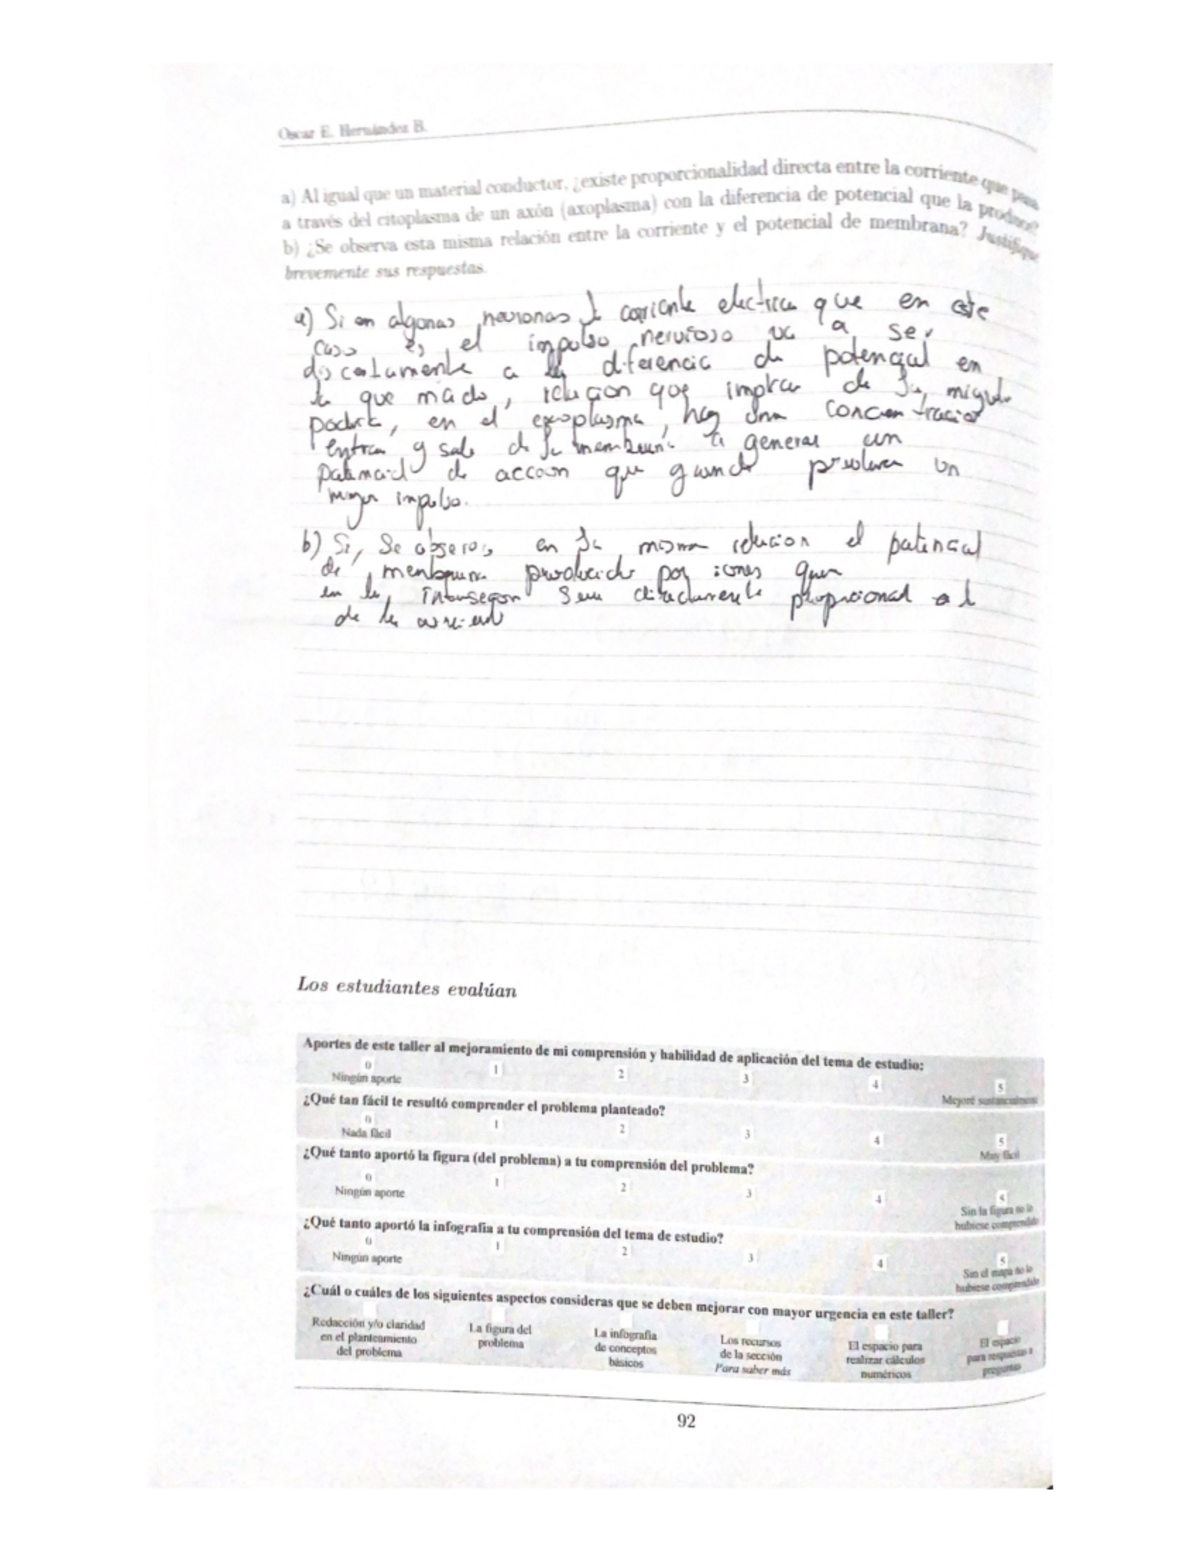 Oscar E. Hernández B.
a) Al igual que un material conductor, ¿existe proporcionalidad directa entre la corriente que pasa
a través del citoplasma de un axón (axoplasma) con la diferencia de potencial que la produce?
b) ¿Se observa esta misma relación entre la corriente y el potencial de membrana? Justifique
brevemente sus respuestas.
a) Si en algunas neuronas corriente electrica que en este
caso es el impulso nervioso va a ser
a diferencia de potencial en
que relacion que implica de
en el hay una concentracion
entra y sale de membrana generar un
de accion que un
mayor impulso.
b) Si, Se observa en la misma relacion el potencial
de producido por iones que
en la proporcional al
de la
Los estudiantes evalúan
Aportes de este taller al mejoramiento de mi comprensión y habilidad de aplicación del tema de estudio:
0 1 2 3 4 5
Ningún aporte Mejoré sustancialmente
¿Qué tan fácil te resultó comprender el problema planteado?
0 1 2 3 4 5
Nada fácil Muy fácil
¿Qué tanto aportó la figura (del problema) a tu comprensión del problema?
0 1 2 3 4 5
Ningún aporte Sin la figura no lo
hubiese comprendido
¿Qué tanto aportó la infografía a tu comprensión del tema de estudio?
0 1 2 3 4 5
Ningún aporte Sin el mapa no lo
hubiese comprendido
¿Cuál o cuáles de los siguientes aspectos consideras que se deben mejorar con mayor urgencia en este taller?
Redacción y/o claridad La figura del La infografía Los recursos El espacio para El espacio
en el planteamiento problema de conceptos de la sección realizar cálculos para respuestas a
del problema básicos Para saber más numéricos preguntas
92